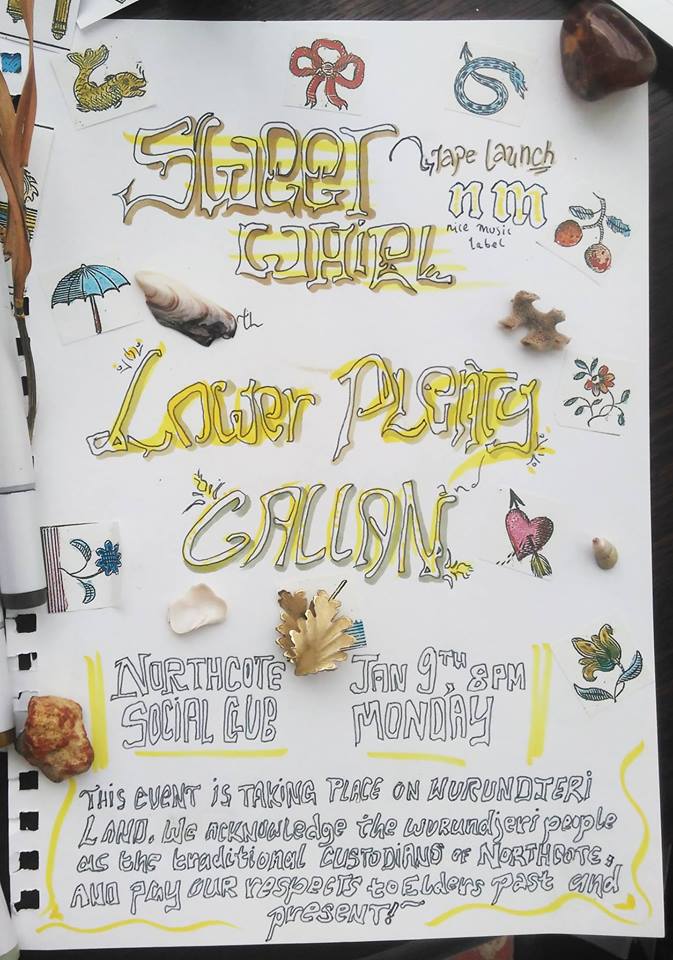 SWEET
WHIRL
Tape Launch
nm
nice music
label
th
Lower Plenty
GALLAN
NORTHCOTE
SOCIAL CLUB
JAN 9TH, 8PM
MONDAY
THIS event IS TAKING PLACE ON WURUNDJERI
LAND. We acknowledge the wurundjeri people
as the traditional CUSTODIANS of NORTHCOTE,
AND pay our respects to Elders past and
present!